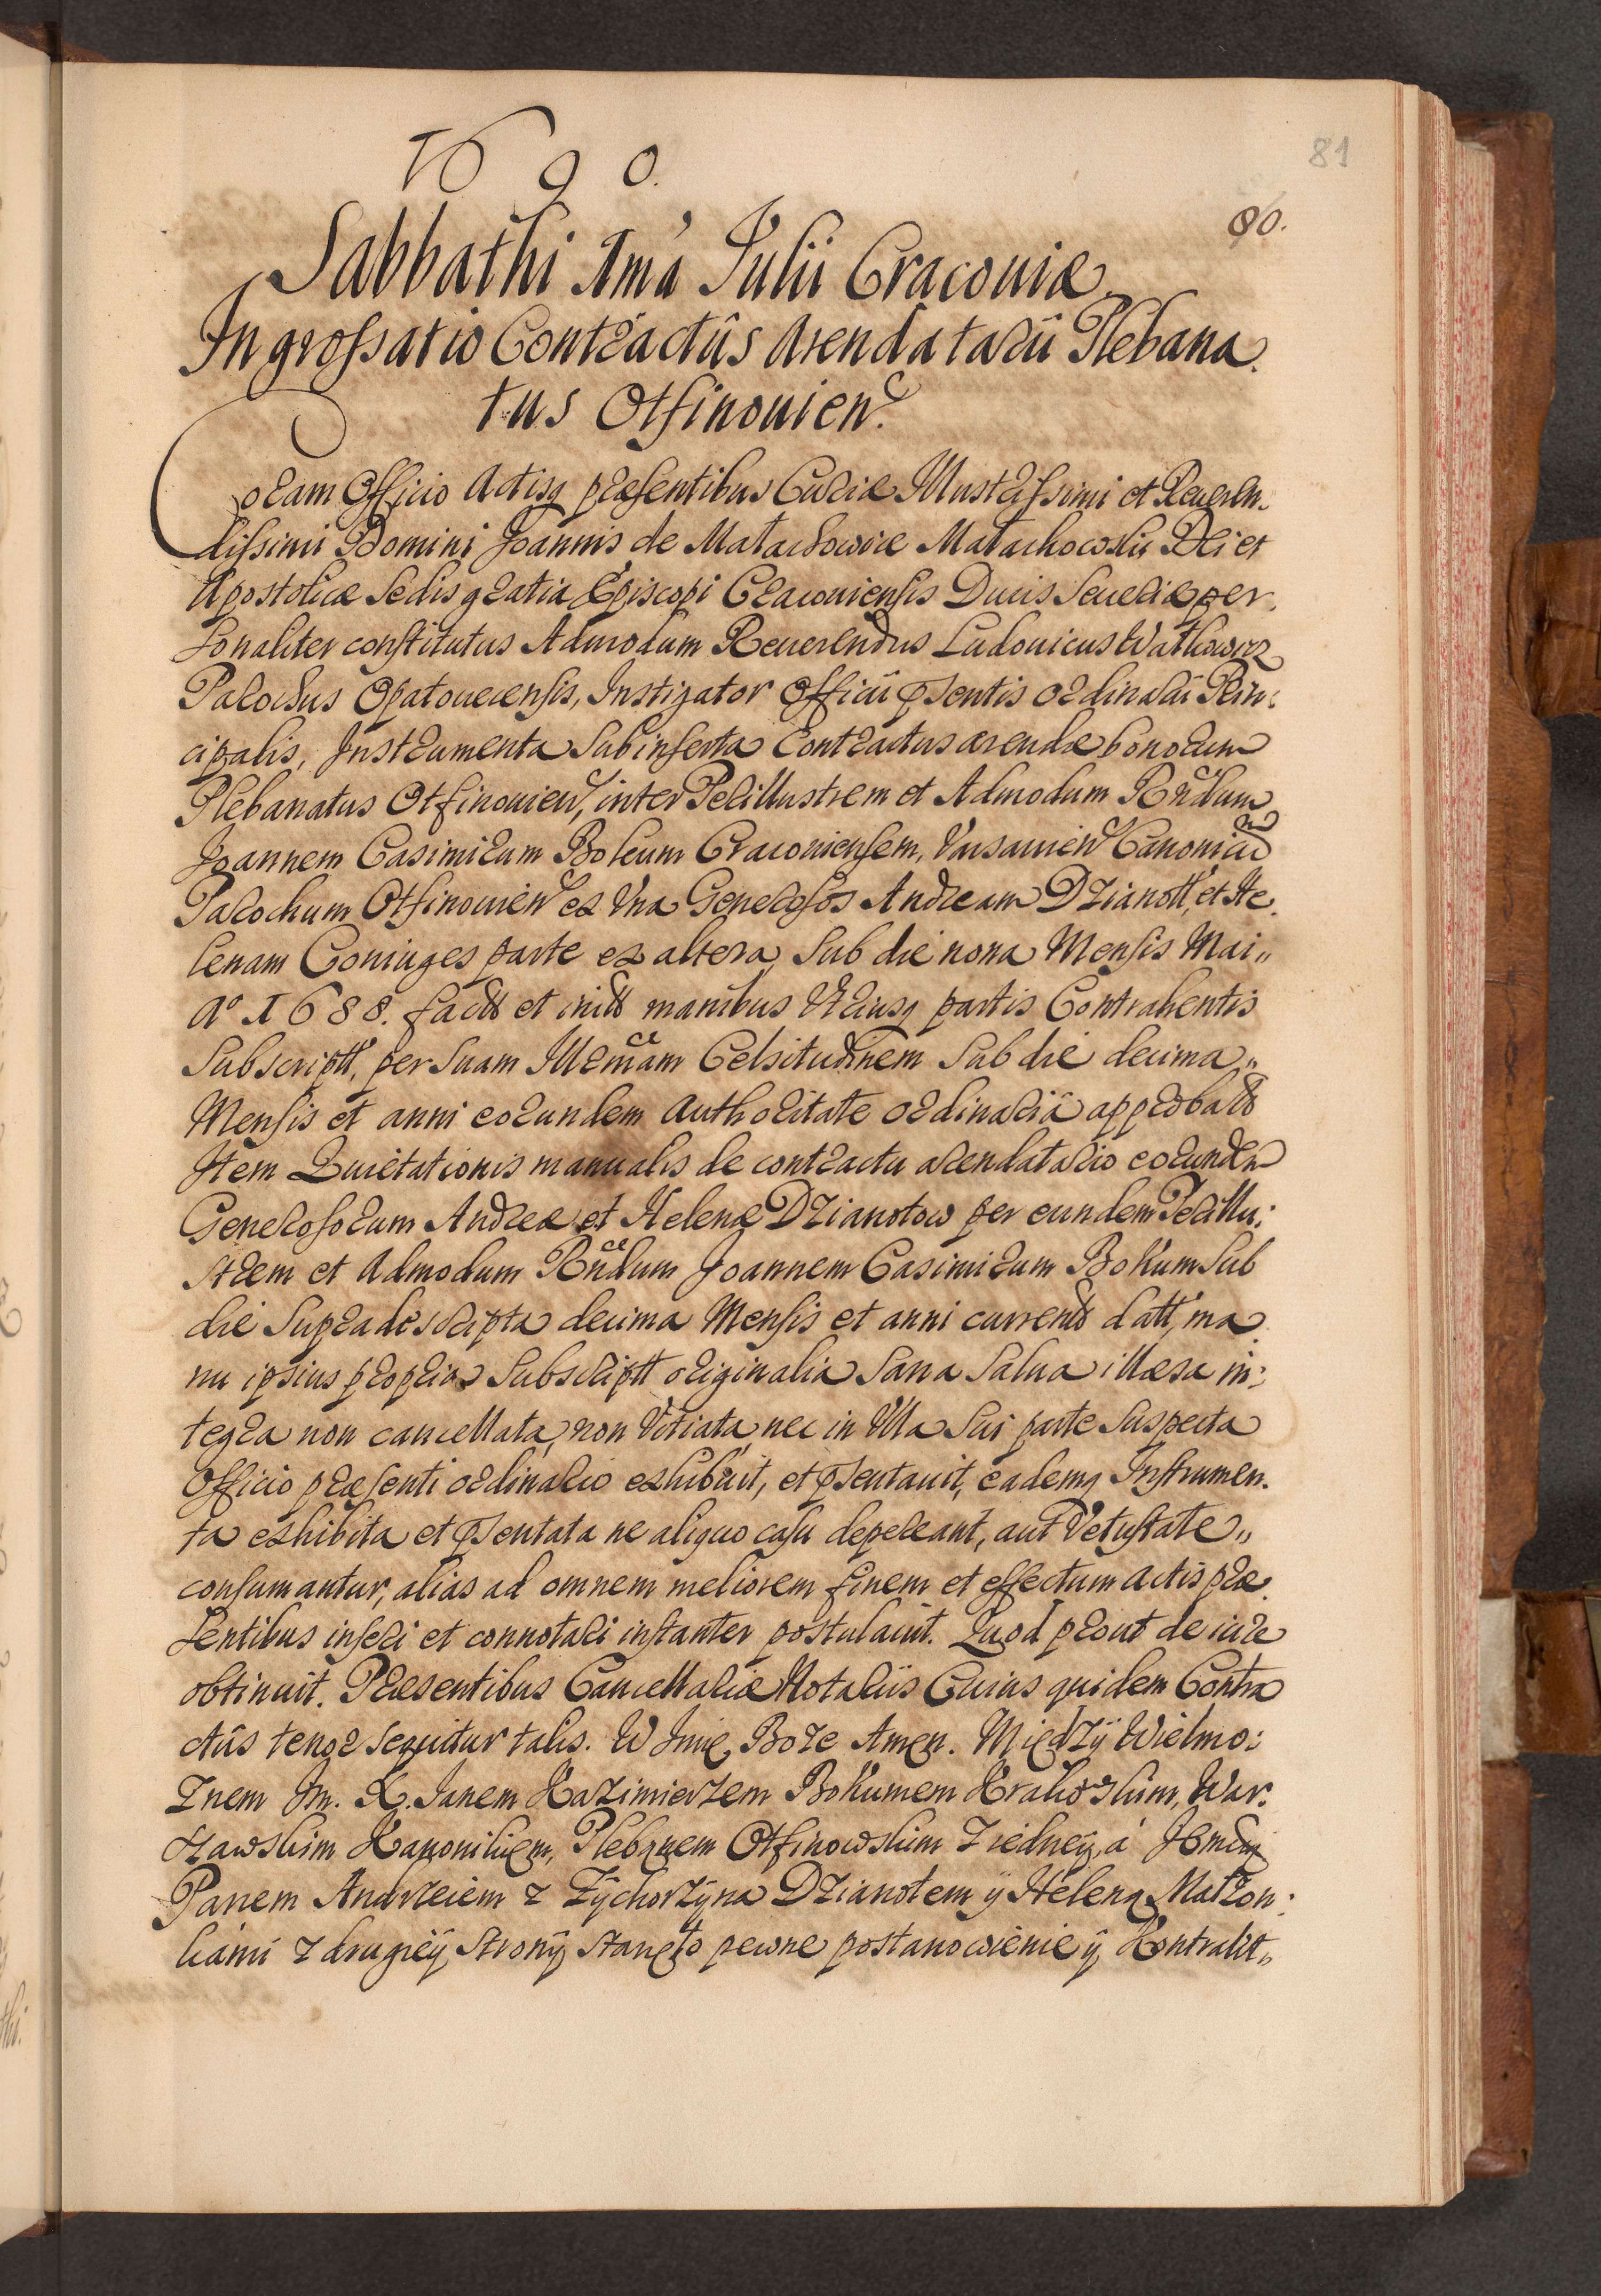 81
1690.
80.
Sabbathi 1ma Julii Cracoviæ.
Ingrossatio Contractûs Arendatarii Plebana.
tus Otfinovien.
Coram Officio Actisq præsentibus Curiæ Illustrissimi et Reveren.
dissimi Domini Joannis de Małachowice Małachowski Dei et
Apostolicæ Sedis gratia Episcopi Cracoviensis Ducis Severiæ per.
sonaliter constitutus Admodum Reverendus Ludovicus
Parochus Opatovecensis, Instigator Officii psentis ordinarii Prin:
cipalis, Instrumenta Subinserta Contractus arendæ bonorum
Plebanatus Otfinovien, inter Perillustrem et Admodum Rndum
Joannem Casimirum Bokum Cracoviensem, Varsavien Canonicum
Parochum Otfinovien ex Una Generosos Andream Dzianott, et He.
lenam Coniuges parte ex altera, Sub die nona Mensis Mai"
Aº 1688. factt et initt manibus Utriusq partis Contrahentis
Subscriptt, per Suam Illrmam Celsitudinem Sub die decima"
Mensis et anni eorundem Authoritate ordinariâ approbatt
Item Quietationis manualis de contractu arendatario eorundem
Generosorum Andreæ et Helenæ Dzianotow per eundem Perillu:
strem et Admodum Rndum Joannem Casimirum Bokum Sub
die Supradescripta decima Mensis et anni currentt datt, ma
nu ipsius propria Subscriptt originalia Sana Salva illæsa in:
tegra non cancellata, non Vitiata, nec in Ulla Sui parte Suspecta
Officio præsenti ordinario exhibuit, et psentavit, eademq Instrumen.
ta exhibita et psentata ne aliquo casu depereant, aut Vetustate"
consumantur, alias ad omnem meliorem finem et effectum Actis præ.
sentibus inseri et connotari instanter postulavit. Quod prout de iure
obtinuit. Præsentibus Cancellariæ Notariis Cuius quidem Contra
ctûs tenor sequitur talis. W Imię Boże Amen. Między Wielmo:
żnem Jm. X. Janem Kazimierzem Bokumem Krakowskim, War.
szawskim Kanonikiem, Plebanem Otfinowskim z iedney, á
Panem Andrzeiem z Żychorzyna Dzianotem ÿ Heleną Małżon:
kami z drugiéÿ Strony stanęło pewne postanowiénie ÿ Kontrakt"